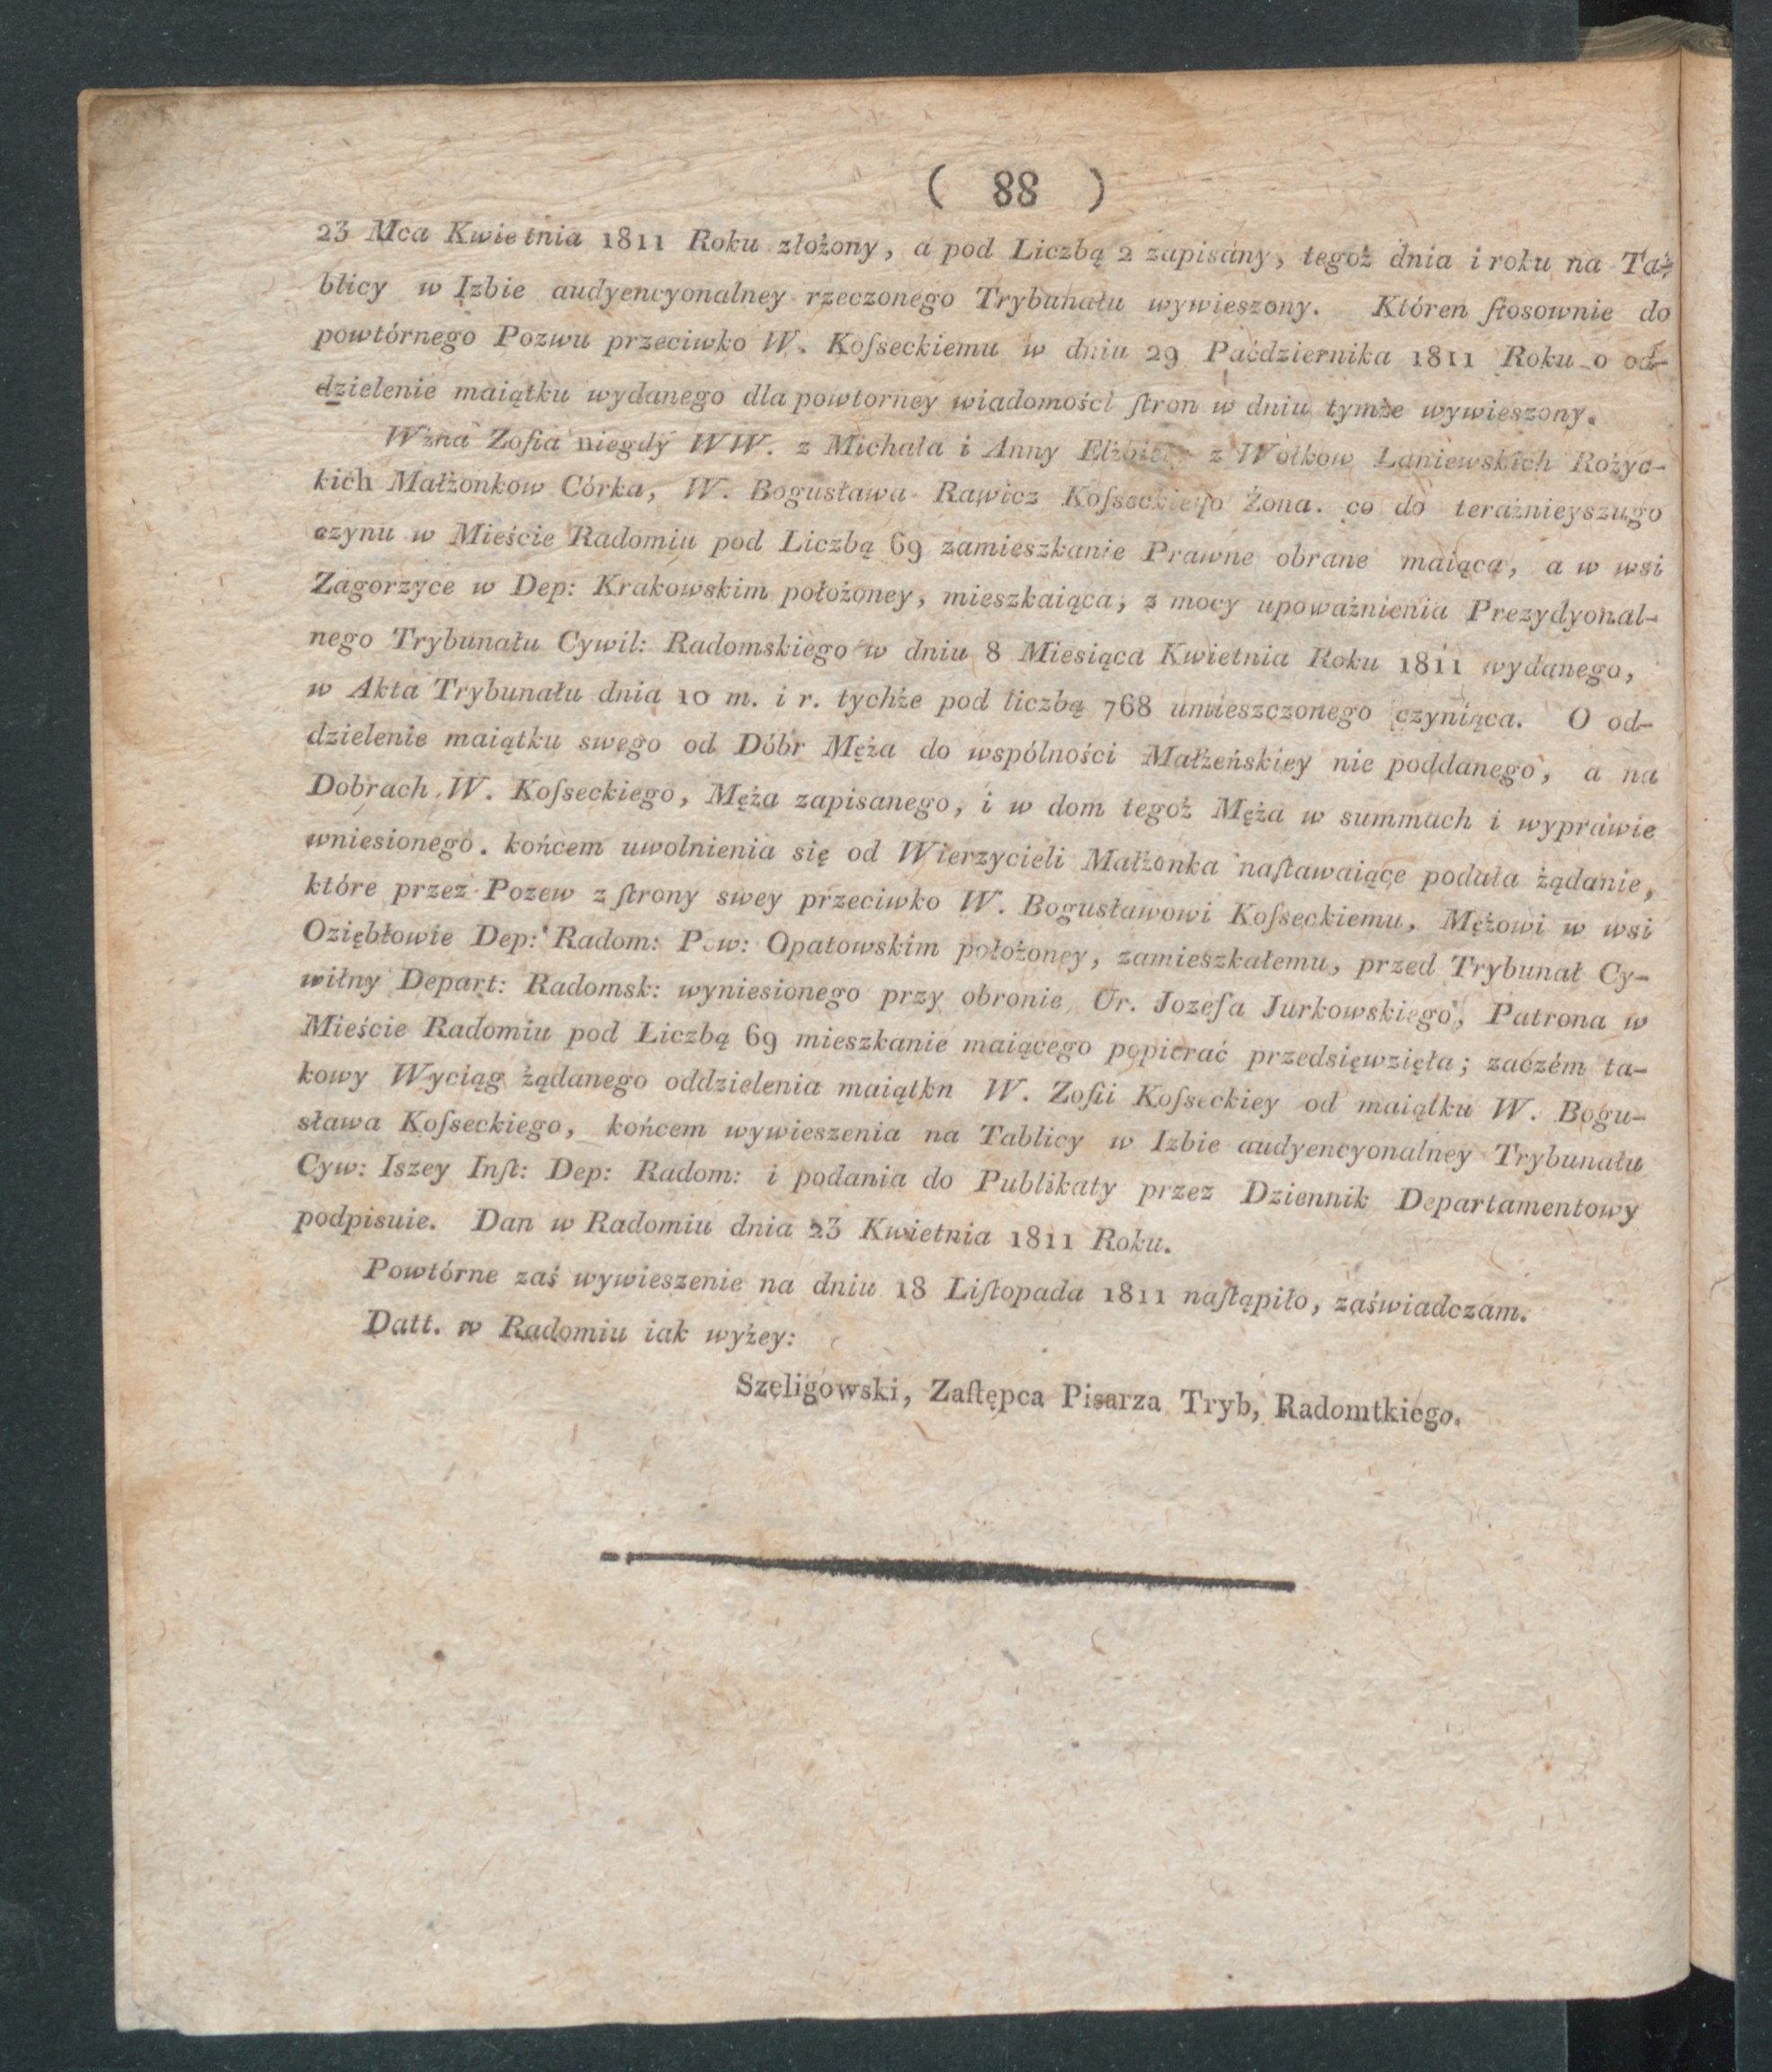 ( 88 )
23 Mca Kwietnia 1811 Roku złożony, a pod Liczbą 2 zapisany, tegoż dnia i roku na Ta-
blicy w Izbie audyencyonalney rzeczonego Trybunału wywieszony. Któren ſtosownie do
powtórnego Pozwu przeciwko W. Koſseckiemu w dniu 29 Października 1811 Roku o od-
dzielenie maiątku wydanego dla powtorney wiadomości ſtron w dniu tymże wywieszony.
Wżna Zofia niegdy WW. z Michała i Anny z Wołkow Laniewskich Rożyc-
kich Małżonkow Córka, W. Bogusława Rawicz Koſseckiego Żona. co do teraźnieyszugo
czynu w Mieście Radomiu pod Liczbą 69 zamieszkanie Prawne obrane maiąca, a w wsi
Zagorzyce w Dep: Krakowskim położoney, mieszkaiąca, z mocy upoważnienia Prezydyonal-
nego Trybunału Cywil: Radomskiego w dniu 8 Miesiąca Kwietnia Roku 1811 wydanego,
w Akta Trybunału dnia 10 m. i r. tychże pod liczbą 768 umieszczonego czyniąca. O od-
dzielenie maiątku swego od Dóbr Męża do wspólności Małżeńskiey nie poddanego, a na
Dobrach W. Koſseckiego, Męża zapisanego, i w dom tegoż Męża w summach i wyprawie
wniesionego. końcem uwolnienia się od Wierzycieli Małżonka naſtawaiące podała żądanie,
które przez Pozew z ſtrony swey przeciwko W. Bogusławowi Koſseckiemu, Mężowi w wsi
Oziębłowie Dep: Radom: Pow: Opatowskim położoney, zamieszkałemu, przed Trybunał Cy-
wilny Depart: Radomsk: wyniesionego przy obronie Ur. Jozefa Jurkowskiego, Patrona w
Mieście Radomiu pod Liczbą 69 mieszkanie maiącego popierać przedsięwzięła; zaczém ta-
kowy Wyciąg żądanego oddzielenia maiątkn W. Zofii Koſseckiey od maiątku W. Bogu-
sława Koſseckiego, końcem wywieszenia na Tablicy w Izbie audyencyonalney Trybunału
Cyw: Iszey Inſt: Dep: Radom: i podania do Publikaty przez Dziennik Departamentowy
podpisuie. Dan w Radomiu dnia 23 Kwietnia 1811 Roku.
Powtórne zaś wywieszenie na dniu 18 Liſtopada 1811 naſtąpiło, zaświadczam.
Datt. w Radomiu iak wyżey:
Szeligowski, Zaſtępca Pisarza Tryb, Radomtkiego.